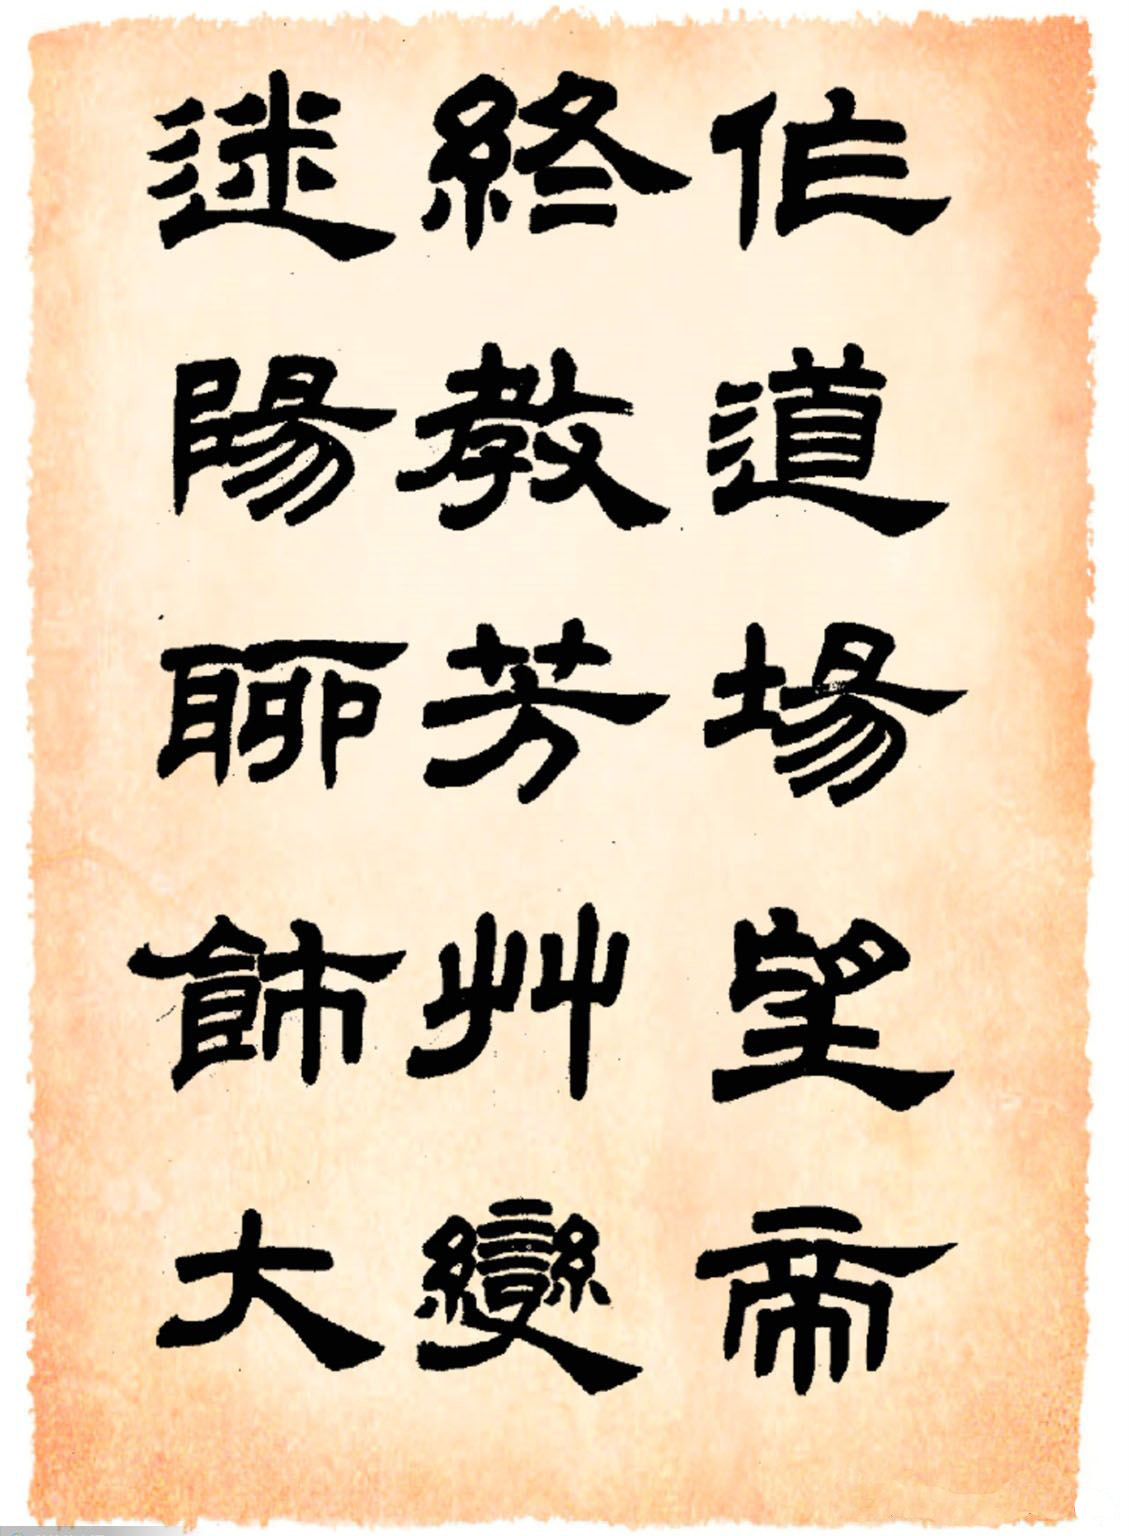 作道場望帝
終教芳艸變
迷陽聊飾大